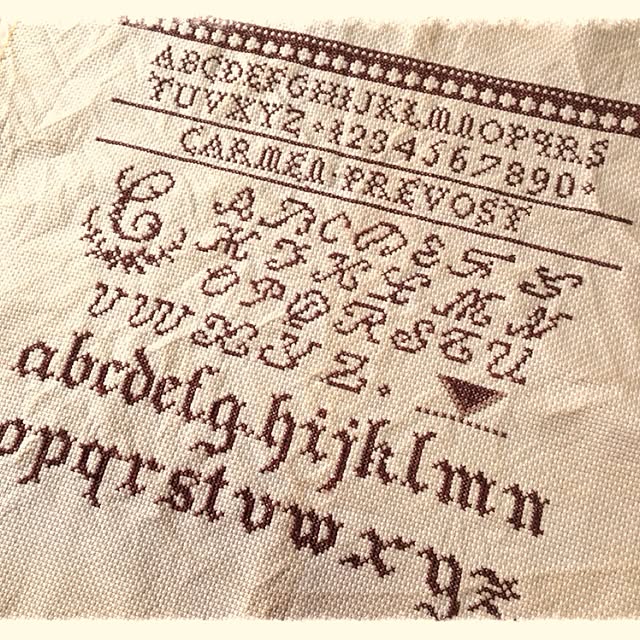 ABCDEFGHIJKLMNOPQRS
TUVXYZ·1234567890·
CARMEN·PREVOST
C
ABCDEFG
HIJKLMN
OPQRSTU
VWXYZ.
abcdefghijklmn
opqrstvwxyz